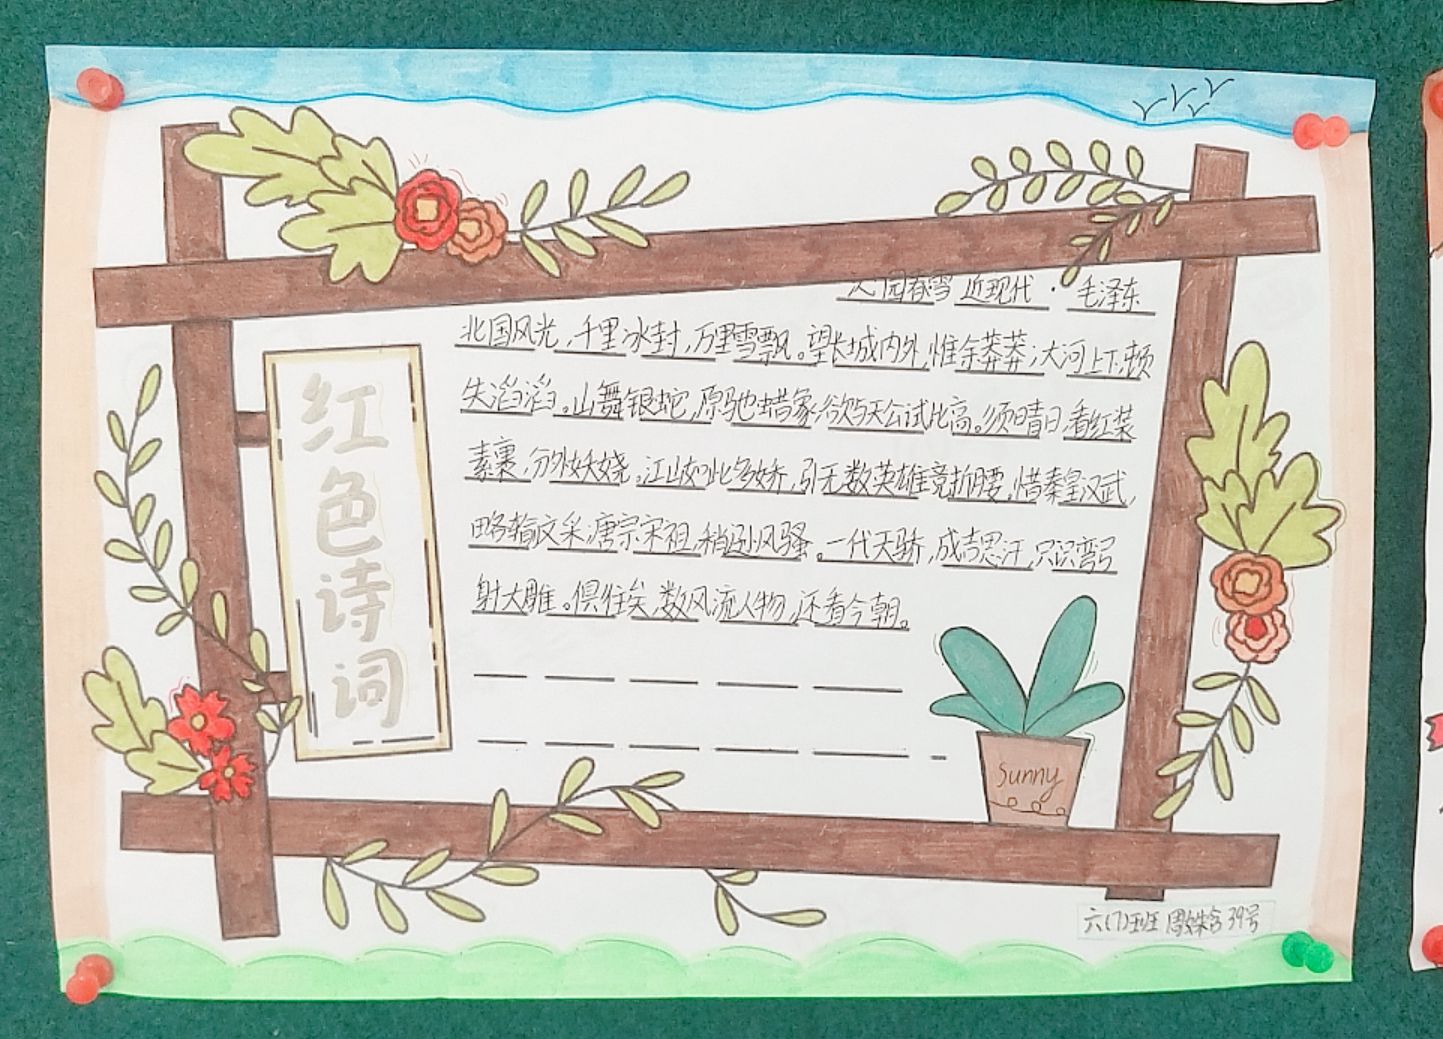 红色诗词
沁园春雪 近现代·毛泽东
北国风光,千里冰封,万里雪飘。望长城内外,惟余莽莽;大河上下,顿
失滔滔。山舞银蛇,原驰蜡象,欲与天公试比高。须晴日,看红装
素裹,分外妖娆。江山如此多娇,引无数英雄竞折腰,惜秦皇汉武,
略输文采,唐宗宋祖,稍逊风骚。一代天骄,成吉思汗,只识弯弓
射大雕。俱往矣,数风流人物,还看今朝。
Sunny
六(7)班 周姝含 39号